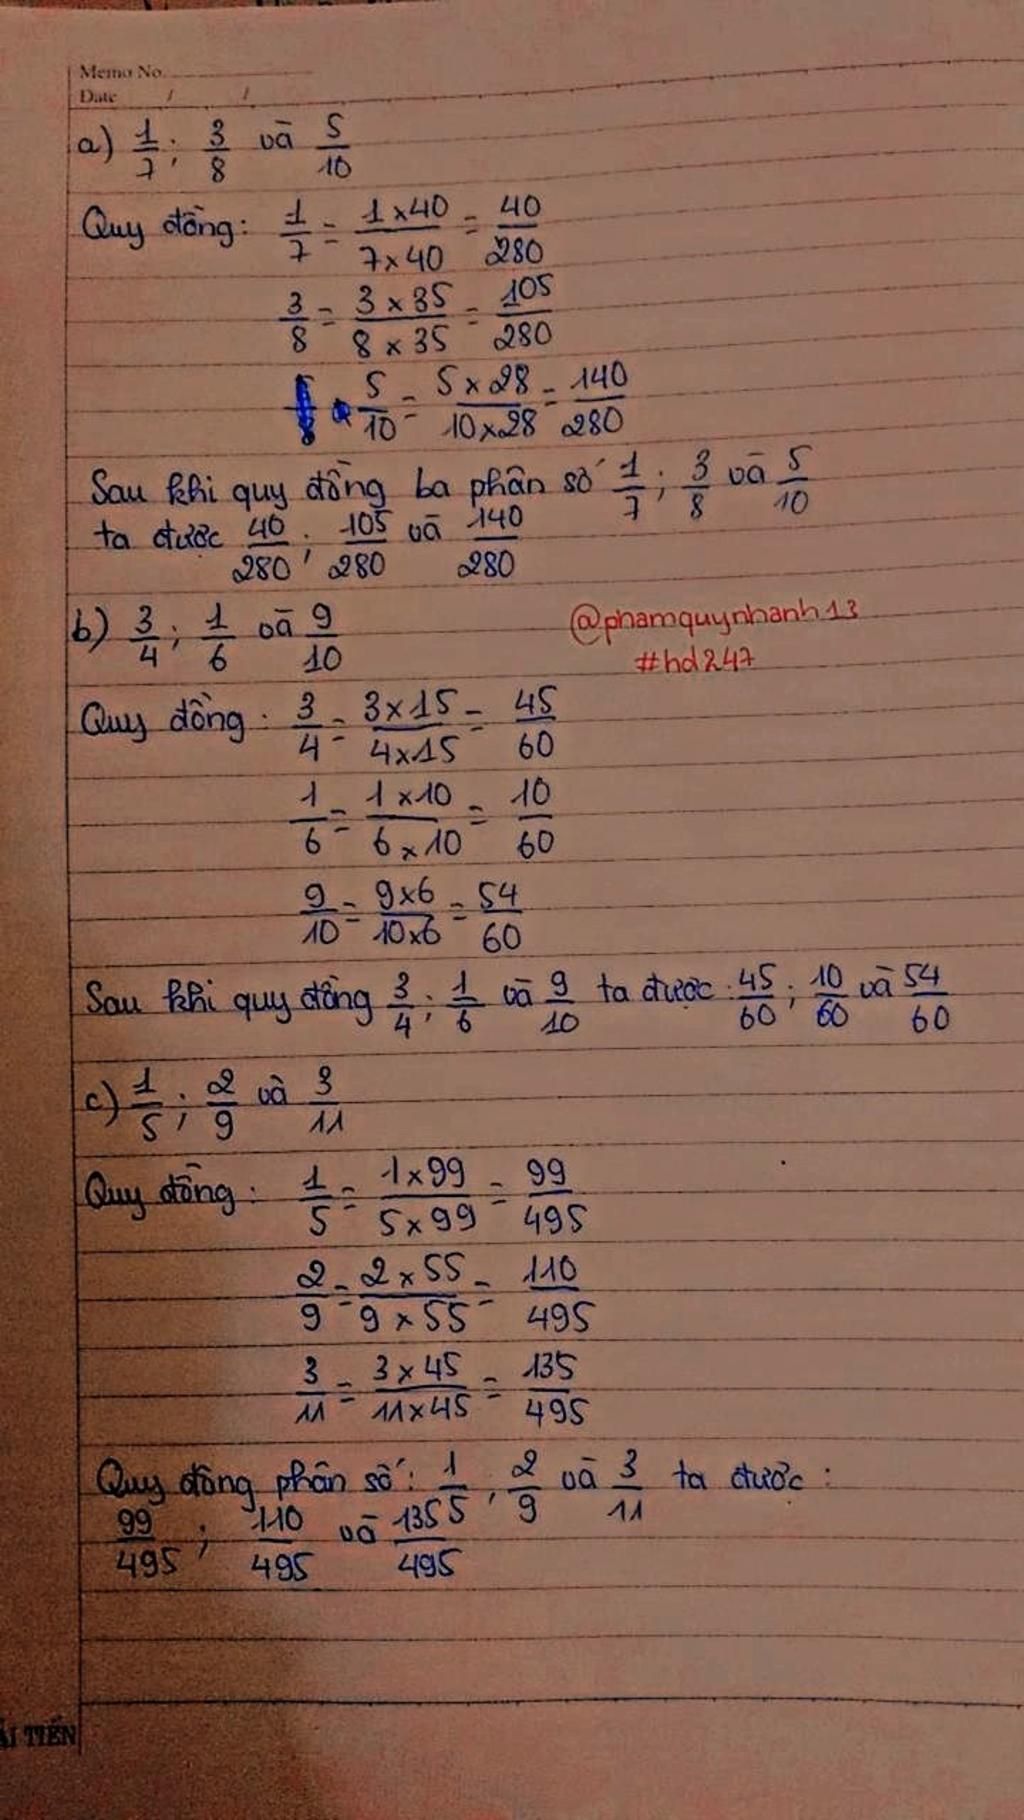 Memo No.
Date / /
a) 1/7 ; 3/8 và 5/10
Quy đồng: 1/7 = 1×40/7×40 = 40/280
3/8 = 3×35/8×35 = 105/280
5/10 = 5×28/10×28 = 140/280
Sau khi quy đồng ba phân số 1/7 ; 3/8 và 5/10
ta được 40/280 ; 105/280 và 140/280
b) 3/4 ; 1/6 và 9/10
@phamquynhanh13
#hd247
Quy đồng : 3/4 = 3×15/4×15 = 45/60
1/6 = 1×10/6×10 = 10/60
9/10 = 9×6/10×6 = 54/60
Sau khi quy đồng 3/4 ; 1/6 và 9/10 ta được : 45/60 ; 10/60 và 54/60
c) 1/5 ; 2/9 và 3/11
Quy đồng : 1/5 = 1×99/5×99 = 99/495
2/9 = 2×55/9×55 = 110/495
3/11 = 3×45/11×45 = 135/495
Quy đồng phân số : 1/5 ; 2/9 và 3/11 ta được :
99/495 ; 110/495 và 135/495
TIẾN